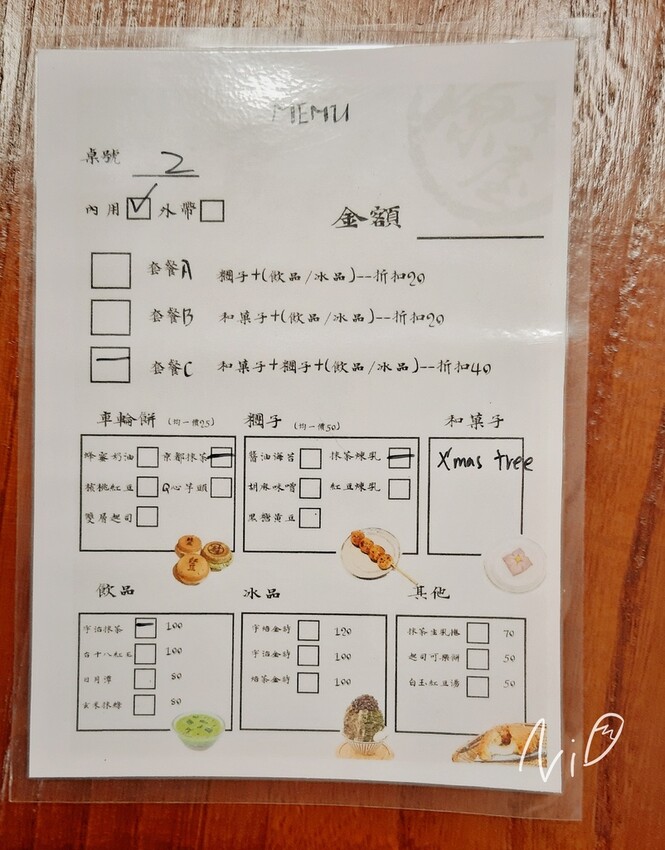 MEMU
桌號 2
內用 外帶
金額
套餐A 糰子+(飲品/冰品)--折扣20
套餐B 和菓子+(飲品/冰品)--折扣20
套餐C 和菓子+糰子+(飲品/冰品)--折扣40
車輪餅 (均一價25)
蜂蜜奶油 京都抹茶
核桃紅豆 Q心芋頭
雙層起司
糰子 (均一價50)
醬油海苔 抹茶煉乳
胡麻味噌 紅豆煉乳
黑糖黃豆
和菓子
X'mas tree
飲品
宇治抹茶 100
台十八紅玉 100
日月潭 80
玄米抹綠 80
冰品
宇焙金時 120
宇治金時 100
焙茶金時 100
其他
抹茶生乳捲 70
起司可樂餅 50
白玉紅豆湯 50
NiD